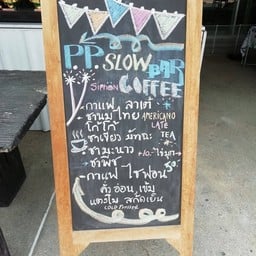 P.P. SLOW BAR
SIPHON COFFEE
-กาแฟ ลาเต้
ชานมไทย AMERICANO
โกโก้ LATE
ชาเขียว มัทฉะ TEA
ชามะนาว
ชาพีช 50.-
-กาแฟ ไซฟอน
คั่วอ่อน, เข้ม